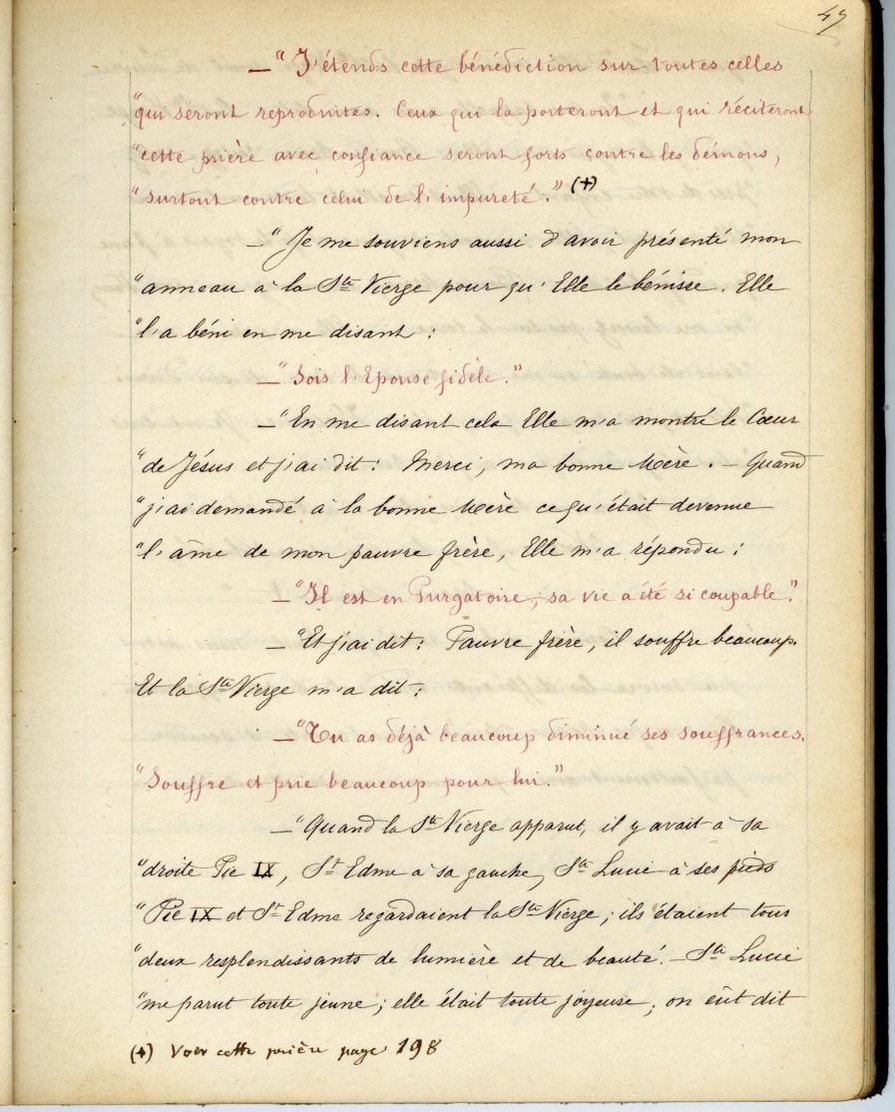 49
—"J'étends cette bénédiction sur toutes celles
"qui seront reproduites. Ceux qui la porteront et qui réciteront
"cette prière avec confiance seront forts contre les démons,
"surtout contre celui de l'impureté." (+)
—"Je me souviens aussi d'avoir présenté mon
"anneau à la Ste Vierge pour qu'Elle le bénisse. Elle
"l'a béni en me disant :
—"Sois l'Epouse fidèle."
—"En me disant cela Elle m'a montré le Cœur
"de Jésus et j'ai dit : Merci, ma bonne Mère. — Quand
"j'ai demandé à la bonne Mère ce qu'était devenue
"l'âme de mon pauvre frère, Elle m'a répondu :
—"Il est en Purgatoire ; sa vie a été si coupable."
—"Et j'ai dit : Pauvre frère, il souffre beaucoup.
Et la Ste Vierge m'a dit :
—"Tu as déjà beaucoup diminué ses souffrances.
"Souffre et prie beaucoup pour lui."
—"Quand la Ste Vierge apparut, il y avait à sa
"droite Pie IX, St Edme à sa gauche, Ste Lucie à ses pieds
"Pie IX et St Edme regardaient la Ste Vierge ; ils étaient tous
"deux resplendissants de lumière et de beauté. — Ste Lucie
"me parut toute jeune ; elle était toute joyeuse ; on eût dit
(+) Voir cette prière page 198